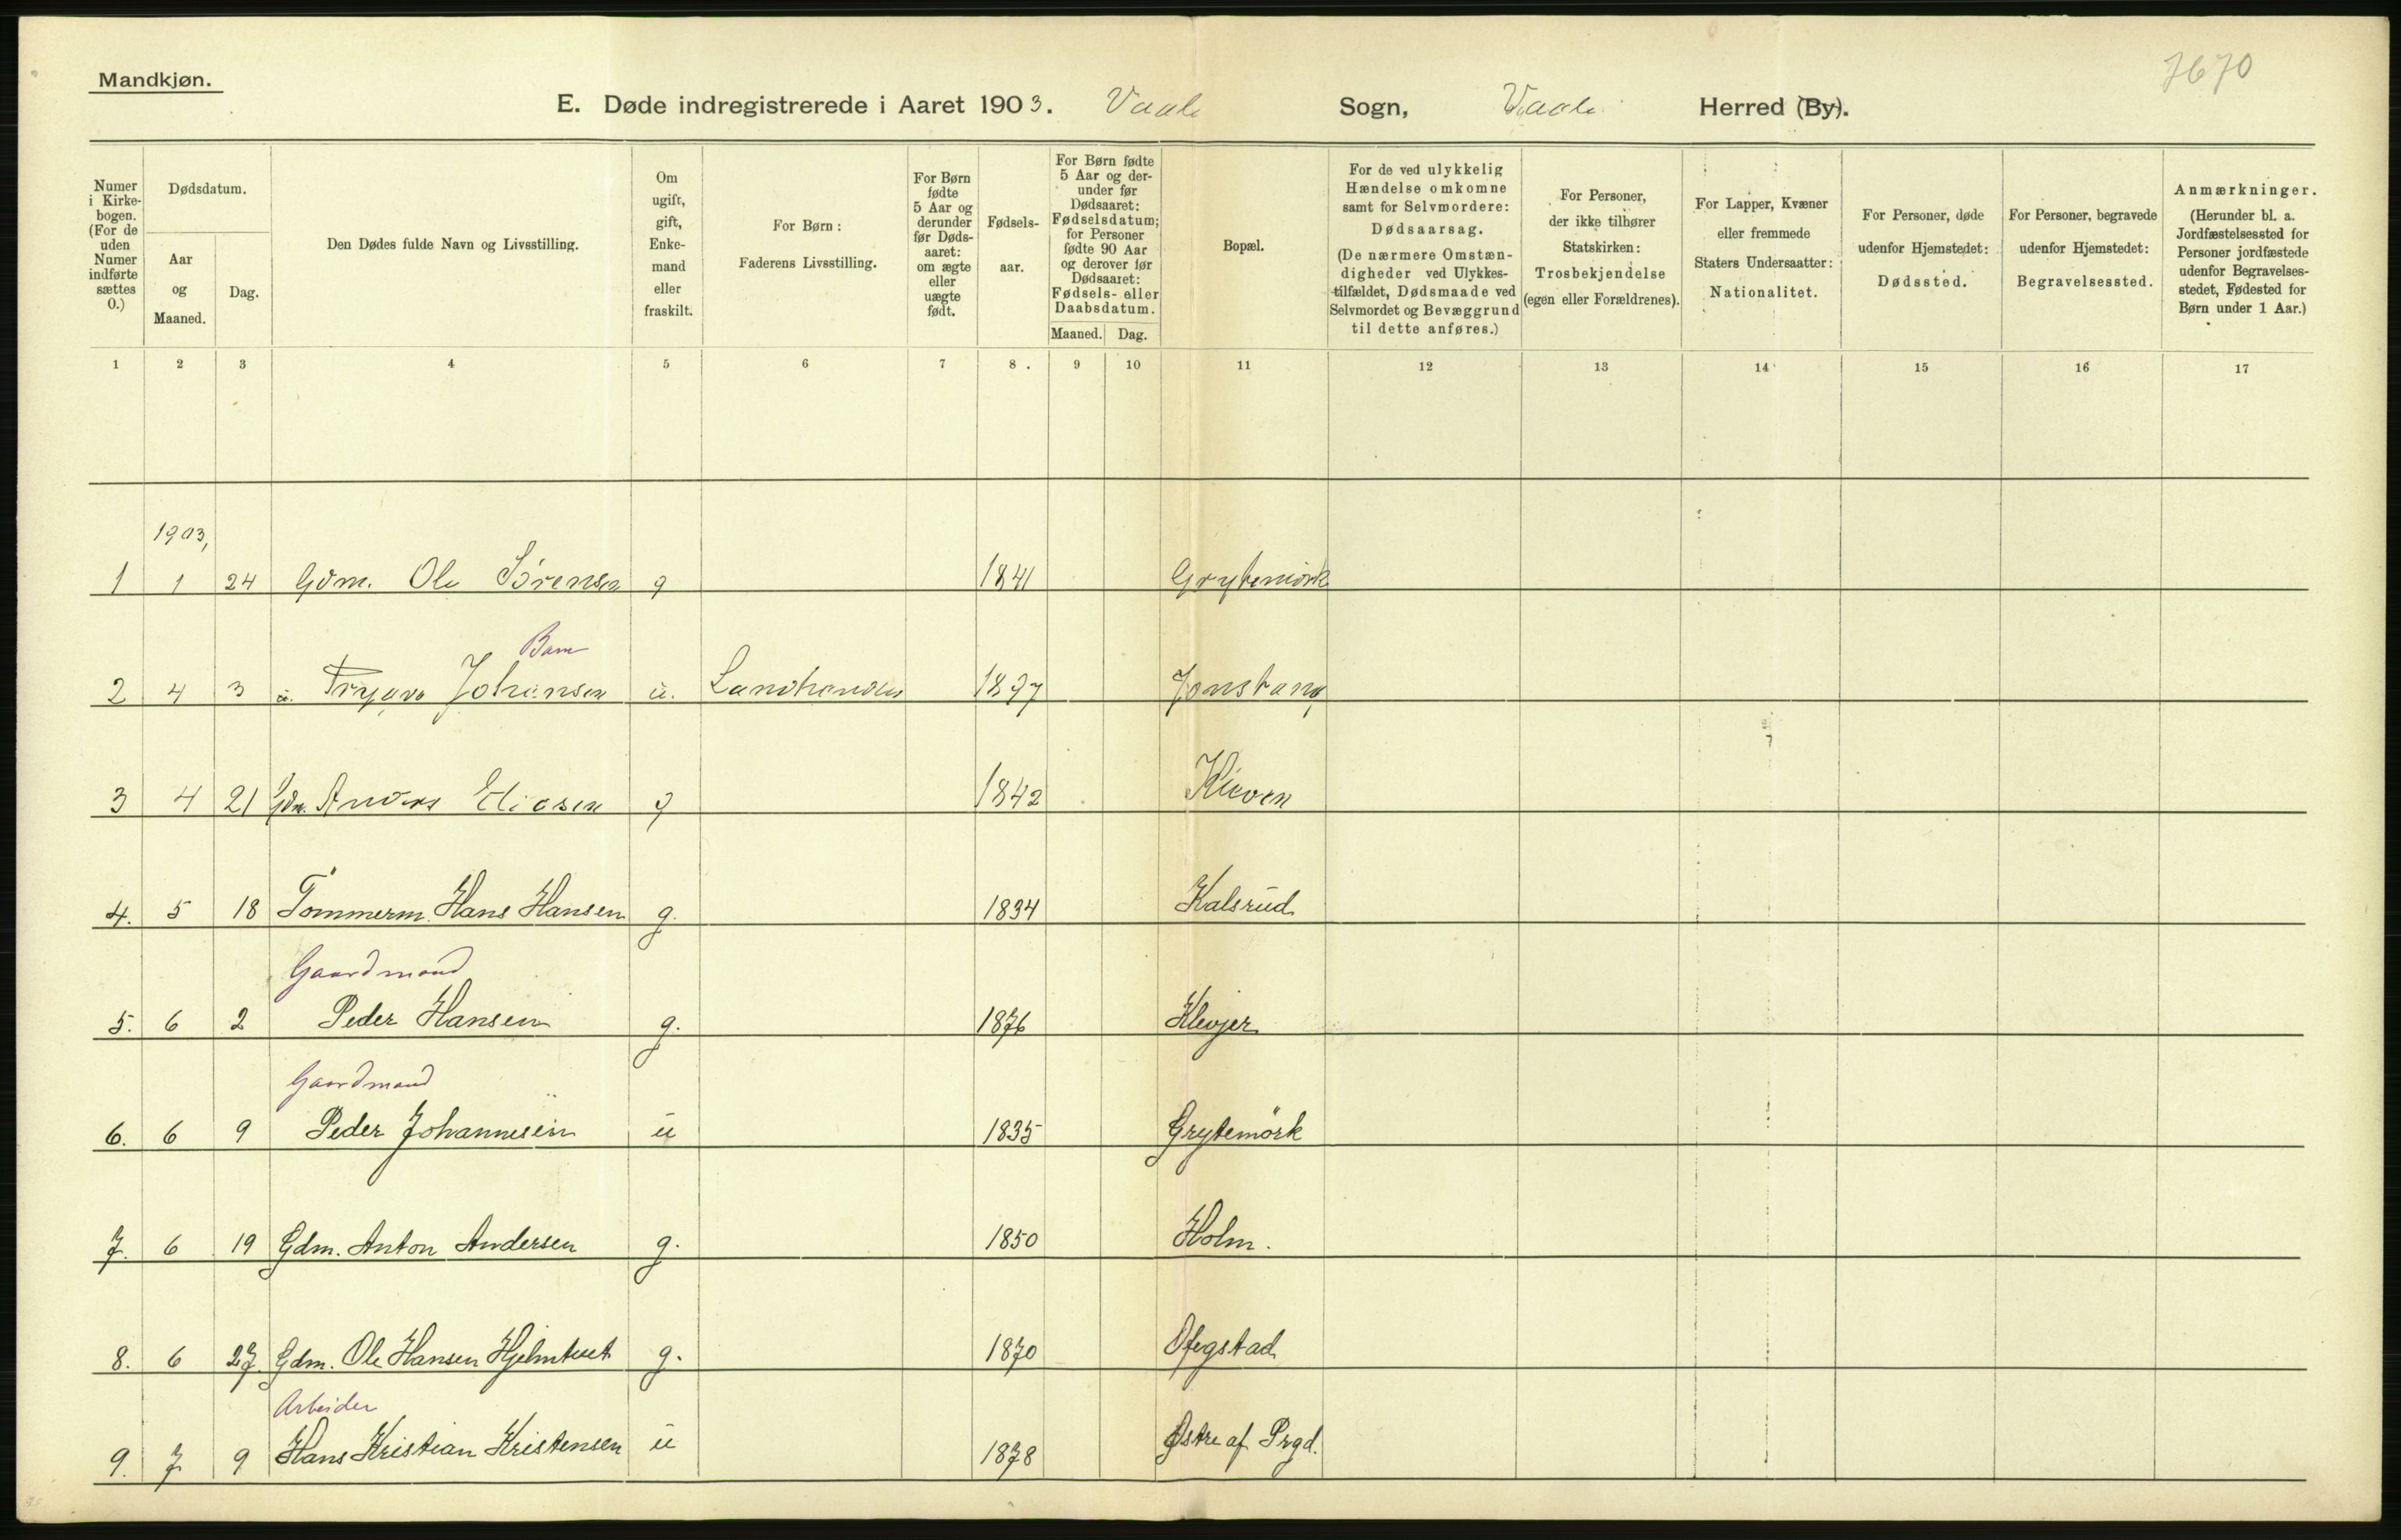 Mandkjøn.
7670
E. Døde indregistrerede i Aaret 1903. Vaale Sogn, Vaale Herred (By).
Numer i Kirkebogen. (For de uden Numer indførte sættes 0.)
Dødsdatum.
Aar og Maaned.
Dag.
Den Dødes fulde Navn og Livsstilling.
Om ugift, gift, Enkemand eller fraskilt.
For Børn: Faderens Livsstilling.
For Børn fødte 5 Aar og derunder før Dødsaaret: om ægte eller uægte født.
Fødselsaar.
For Børn fødte 5 Aar og derunder før Dødsaaret: Fødselsdatum; for Personer fødte 90 Aar og derover før Dødsaaret: Fødsels- eller Daabsdatum.
Maaned. Dag.
Bopæl.
For de ved ulykkelig Hændelse omkomne samt for Selvmordere: Dødsaarsag. (De nærmere Omstændigheder ved Ulykkestilfældet, Dødsmaade ved Selvmordet og Bevæggrund til dette anføres.)
For Personer, der ikke tilhører Statskirken: Trosbekjendelse (egen eller Forældrenes).
For Lapper, Kvæner eller fremmede Staters Undersaatter: Nationalitet.
For Personer, døde udenfor Hjemstedet: Dødssted.
For Personer, begravede udenfor Hjemstedet: Begravelsessted.
Anmærkninger. (Herunder bl. a. Jordfæstelsessted for Personer jordfæstede udenfor Begravelsesstedet, Fødested for Børn under 1 Aar.)
1 2 3 4 5 6 7 8 9 10 11 12 13 14 15 16 17
1903,
1 1 24 Gdm. Ole Sörensen g 1841 Grytemörk
Barn
2 4 3 u. Trygve Johansen u. Landhandler 1897 Jonstang
3 4 21 Gdm. Anders Eliasen g 1842 Kleven
4. 5 18 Tömmerm. Hans Hansen g. 1834 Kalsrud
Gaardmand
5. 6 2 Peder Hansen g. 1876 Klevjer
Gaardmand
6. 6 9 Peder Johannesen u 1835 Grytemörk
7. 6 19 Gdm. Anton Andersen g. 1850 Holm.
8. 6 27. Gdm. Ole Hansen Hjelmtvet g. 1870 Ofegstad
Arbeider
9. 7 9 Hans Kristian Kristensen u 1878 Østre af Prgd.